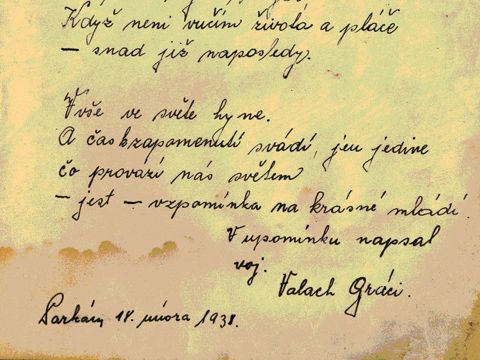 Když není vučím života a pláče
– snad již naposledy.
Vše ve světe hyne.
A čas k zapomenutí svádí, jeu jedine
čo provazí nás světem
– jest – vzpomínka na krásné mládí.
V upomínku napsal
voj.
Valach Gráci.
Parkáń, 18. února 1938.